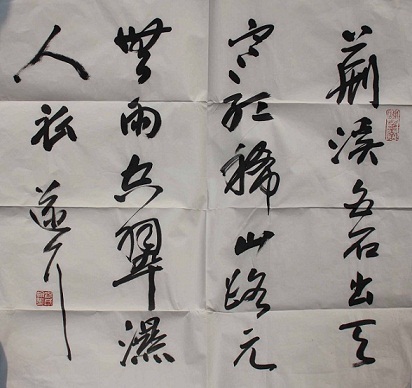 荆溪白石出天
寒紅稀山路元
無雨空翠濕
人衣